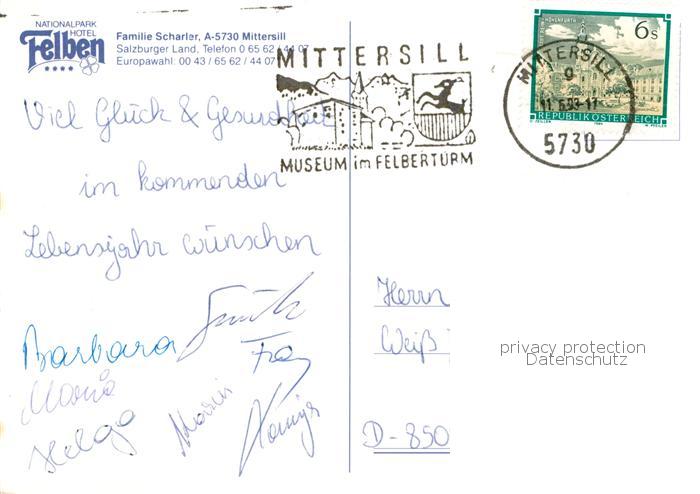 NATIONALPARK
HOTEL
Felben
Familie Scharler, A-5730 Mittersill
Salzburger Land, Telefon 0 65 62 / 44 07
Europawahl: 00 43 / 65 62 / 44 07
MITTERSILL
MUSEUM im FELBERTURM
6s
REPUBLIK ÖSTERREICH
MITTERSILL
5730
Viel Glück & Gesundheit
im kommenden
Lebensjahr wünschen
Barbara
Maria
Helga
Herrn
Weiß
D-850
privacy protection
Datenschutz